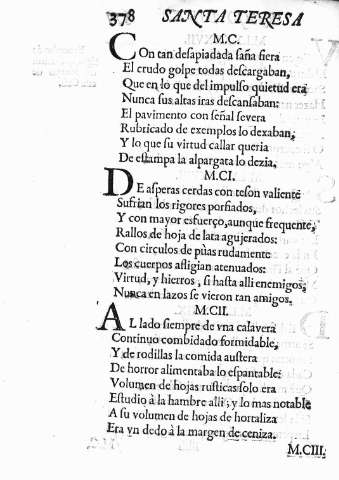 378 SANTA TERESA
M.C.
COn tan desapiadada saña fiera
El crudo golpe todas descargaban,
Que en lo que del impulso quietud era
Nunca sus altas iras descansaban:
El pavimento con señal severa
Rubricado de exemplos lo dexaban,
Y lo que su virtud callar queria
De estampa la alpargata lo dezia.
M.CI.
DE asperas cerdas con teson valiente
Sufrian los rigores porfiados,
Y con mayor esfuerço, aunque frequente,
Rallos de hoja de lata agujerados:
Con circulos de pùas rudamente
Los cuerpos afligian atenuados:
Virtud, y hierros, si hasta alli enemigos,
Nunca en lazos se vieron tan amigos.
M.CII.
AL lado siempre de vna calavera
Continuo combidado formidable,
Y de rodillas la comida austera
De horror alimentaba lo espantable:
Volumen de hojas rusticas solo era
Estudio à la hambre alli; y lo mas notable
A su volumen de hojas de hortaliza
Era vn dedo à la margen de ceniza.
M.CIII.